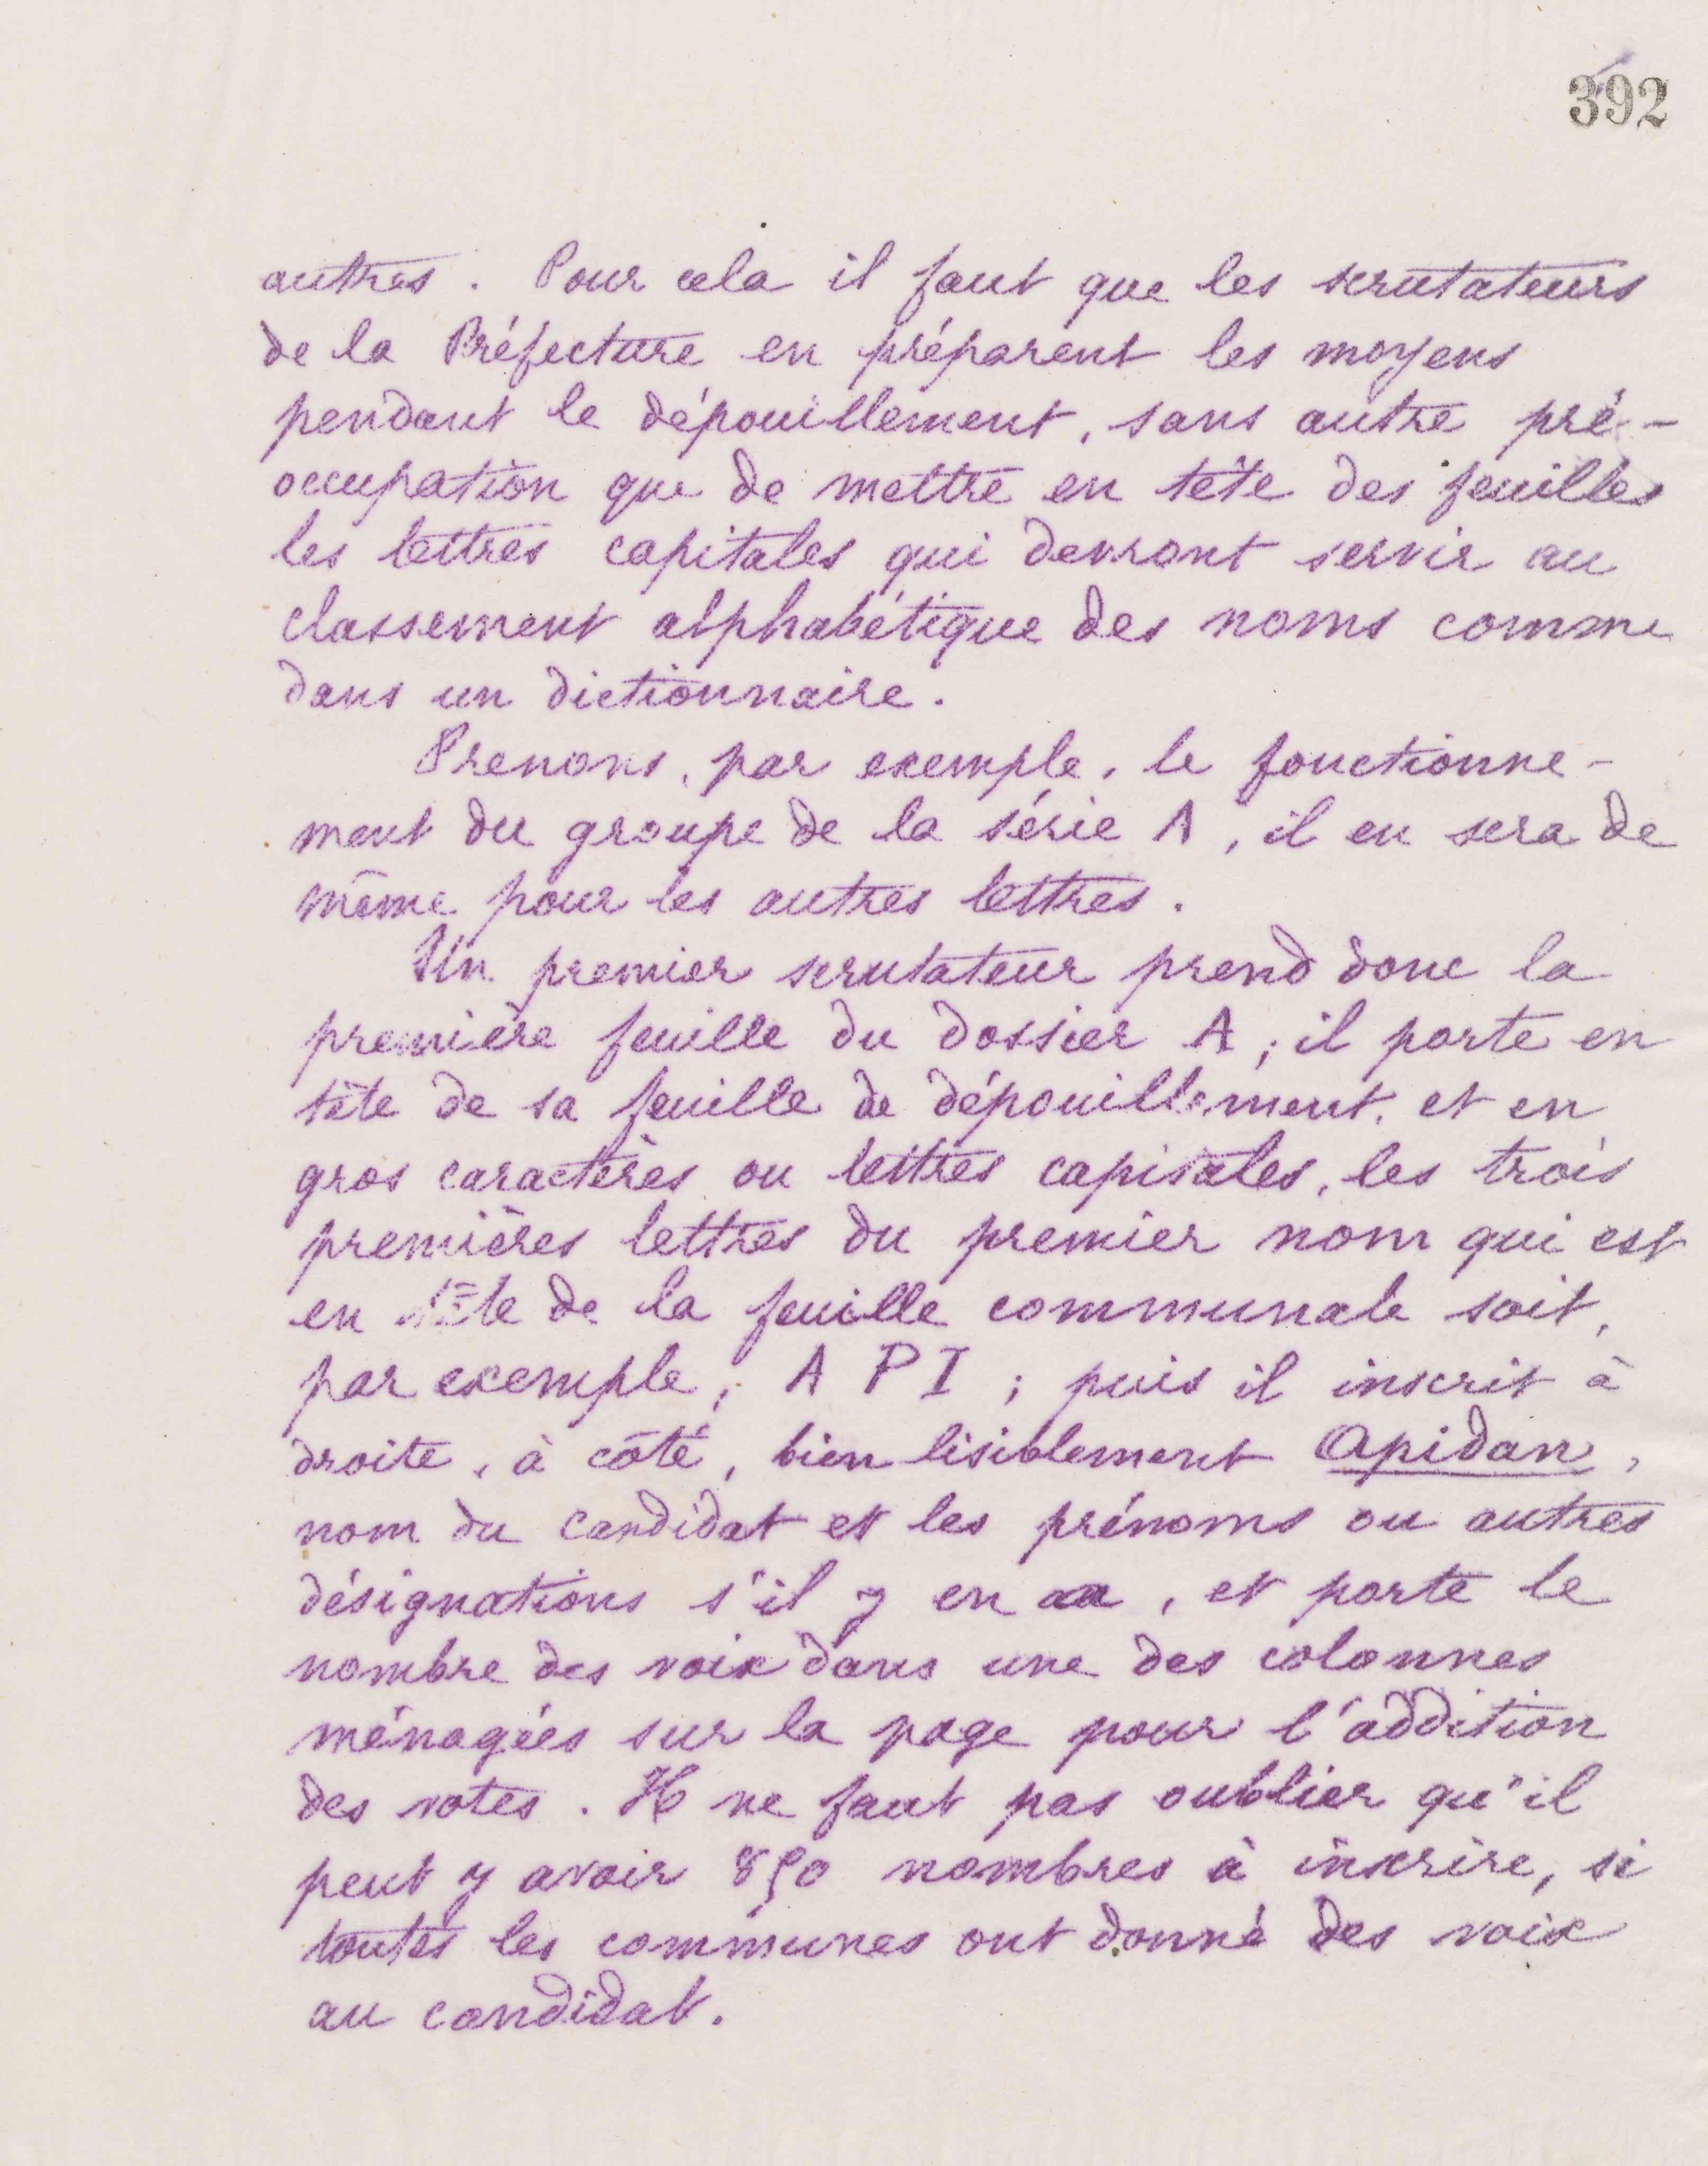 392
autres. Pour cela il faut que les scrutateurs
de la Préfecture en préparent les moyens
pendant le dépouillement, sans autre pré-
occupation que de mettre en tête des feuilles
les lettres capitales qui devront servir au
classement alphabétique des noms comme
dans un dictionnaire.
Prenons, par exemple, le fonctionne-
ment du groupe de la série A, il en sera de
même pour les autres lettres.
Un premier scrutateur prend donc la
première feuille du dossier A; il porte en
tête de sa feuille de dépouillement, et en
gros caractères ou lettres capitales, les trois
premières lettres du premier nom qui est
en tête de la feuille communale soit,
par exemple, A P I ; puis il inscrit à
droite, à côté, bien lisiblement Apidan,
nom du candidat et les prénoms ou autres
désignations s'il y en a, et porte le
nombre des voix dans une des colonnes
ménagées sur la page pour l'addition
des votes. Il ne faut pas oublier qu'il
peut y avoir 850 nombres à inscrire, si
toutes les communes ont donné des voix
au candidat.